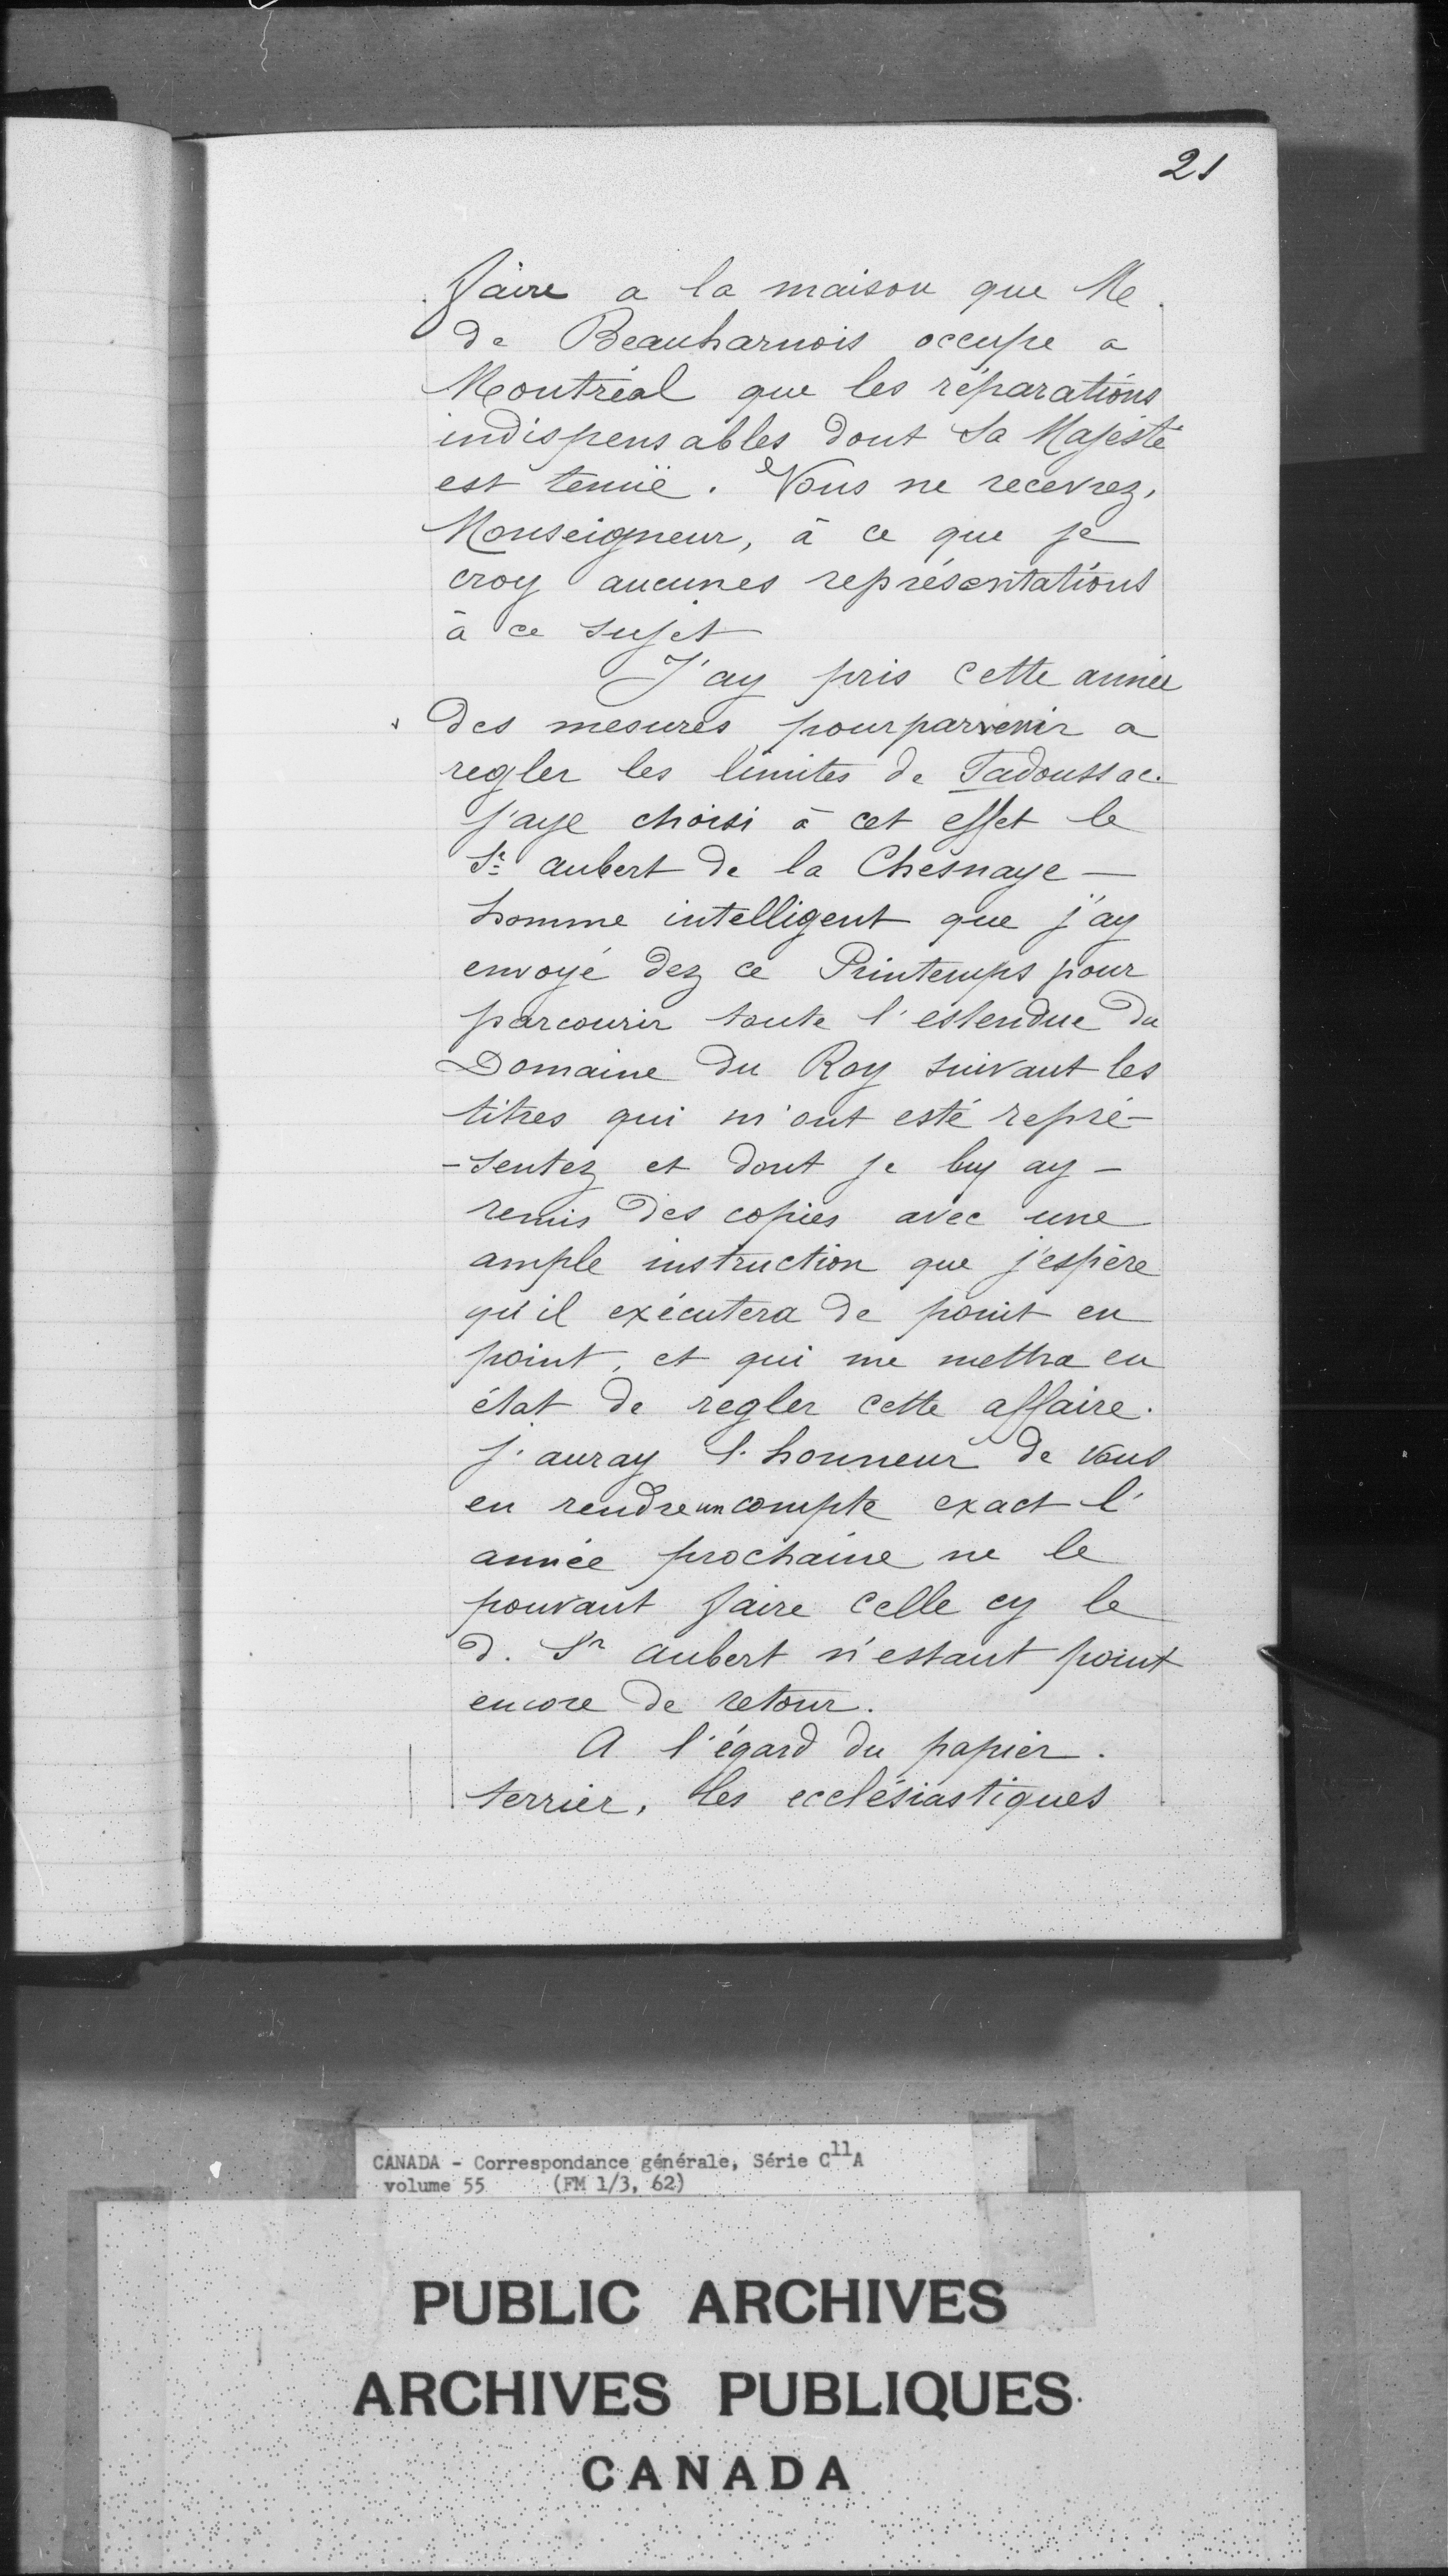 21
faire a la maison que Me
de Beauharnois occupe a
Montréal que les réparations
indispensables dont Sa Majesté
est tenuë. Vous ne recevrez,
Monseigneur, à ce que je
croy aucunes représentations
à ce sujet
J'ay pris cette année
des mesures pour parvenir a
regler les limites de Tadoussac.
J'aye choisi à cet effet le
Sr aubert de la Chesnaye —
homme intelligent que j'ay
envoyé dez ce Printemps pour
parcourir toute l'estendue du
Domaine du Roy suivant les
titres qui m'ont esté repré-
-sentez et dont je luy ay —
remis des copies avec une
ample instruction que j'espère
qu'il exécutera de point en
point, et qui me mettra en
état de regler cette affaire.
J'auray l'honneur de vous
en rendre un compte exact l'
année prochaine ne le
pouvant faire celle cy le
d. Sr aubert n'estant point
encore de retour.
A l'égard du papier.
terrier, les ecclésiastiques
CANADA - Correspondance générale, Série C11A
volume 55 (FM 1/3, 62)
PUBLIC ARCHIVES
ARCHIVES PUBLIQUES
CANADA